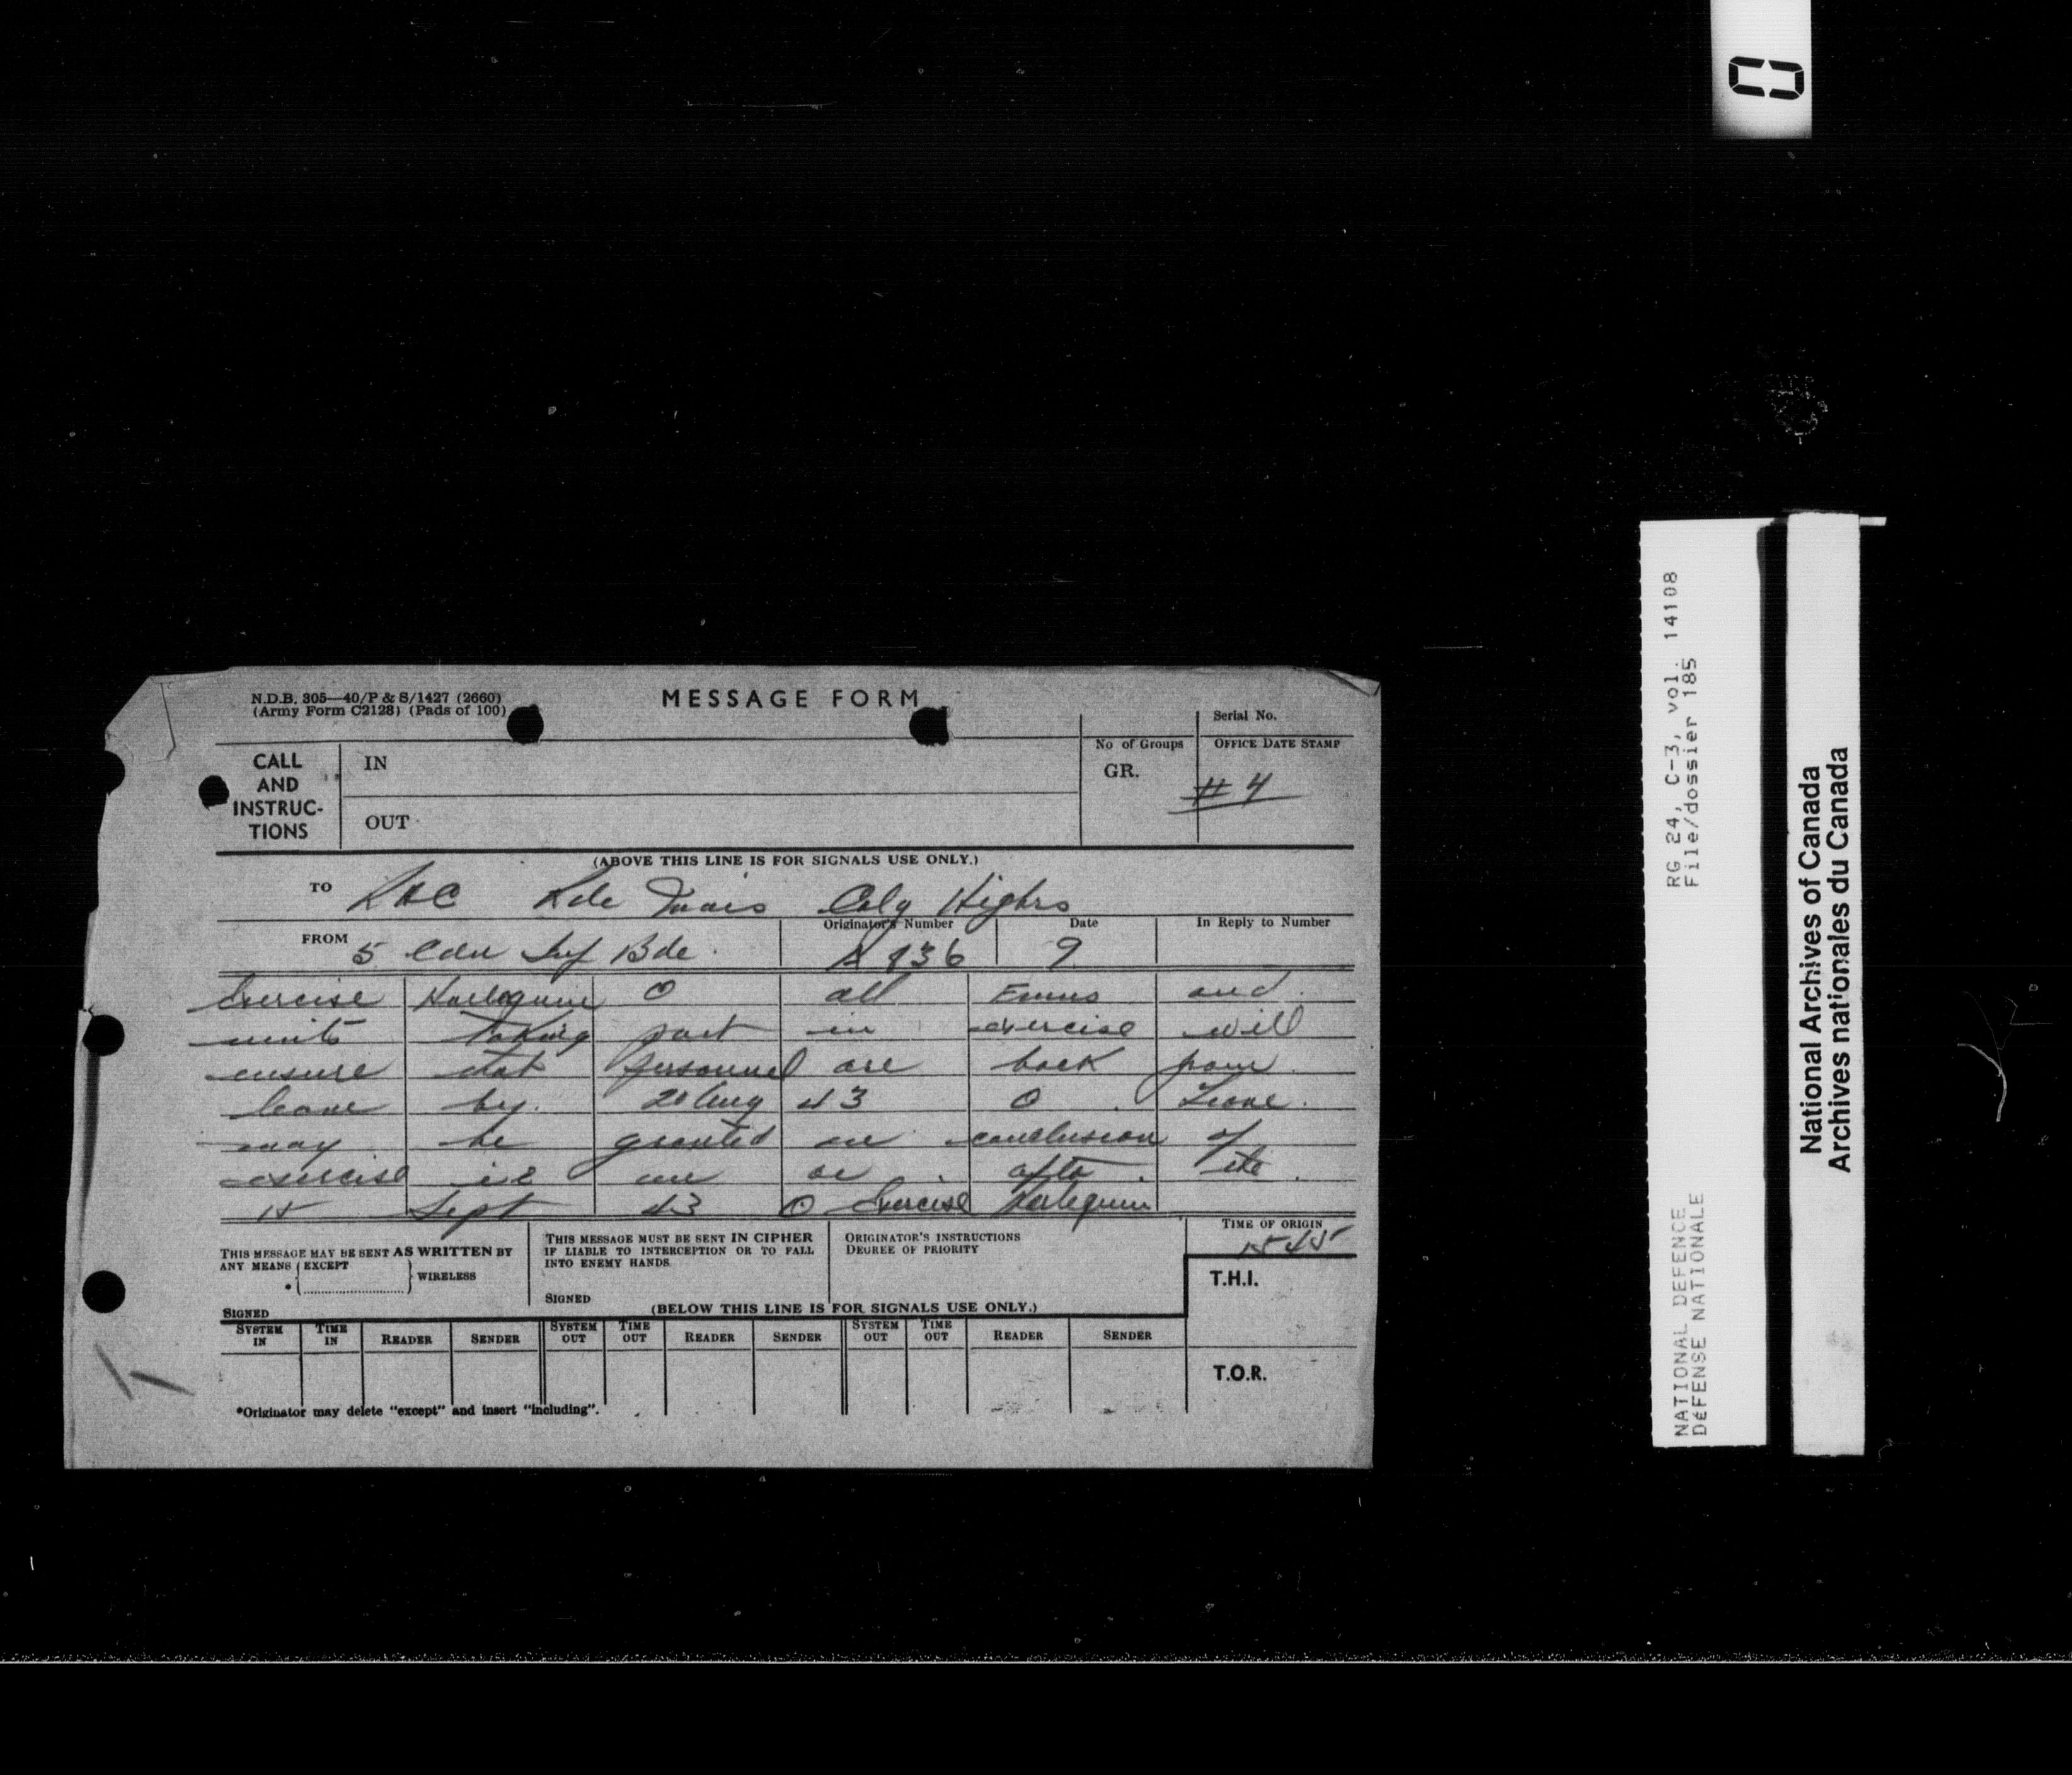 N.D.B. 305—40/P & S/1427 (2660)
(Army Form C2128) (Pads of 100)
MESSAGE FORM
Serial No.
CALL AND INSTRUC- TIONS
IN
OUT
No of Groups
GR.
OFFICE DATE STAMP
#4
(ABOVE THIS LINE IS FOR SIGNALS USE ONLY.)
TO RHC R de Mais Calg Highrs
FROM 5 Cdn Inf Bde Originator's Number A 836 Date 9 In Reply to Number
Exercise Harlequin O all Fmns and
units taking part in exercise will
ensure that personnel are back from
leave by 20 Aug 43 O Leave
may be granted on conclusion of
exercise i.e on or after the
15 Sept 43 O Exercise Harlequin
THIS MESSAGE MAY BE SENT AS WRITTEN BY
ANY MEANS (EXCEPT
*
) WIRELESS
SIGNED
THIS MESSAGE MUST BE SENT IN CIPHER
IF LIABLE TO INTERCEPTION OR TO FALL
INTO ENEMY HANDS.
SIGNED
ORIGINATOR'S INSTRUCTIONS
DEGREE OF PRIORITY
TIME OF ORIGIN
1545
T.H.I.
(BELOW THIS LINE IS FOR SIGNALS USE ONLY.)
SYSTEM IN TIME IN READER SENDER SYSTEM OUT TIME OUT READER SENDER SYSTEM OUT TIME OUT READER SENDER
T.O.R.
*Originator may delete "except" and insert "including".
RG 24, C-3, vol. 14108
File/dossier 185
NATIONAL DEFENCE
DÉFENSE NATIONALE
National Archives of Canada
Archives nationales du Canada